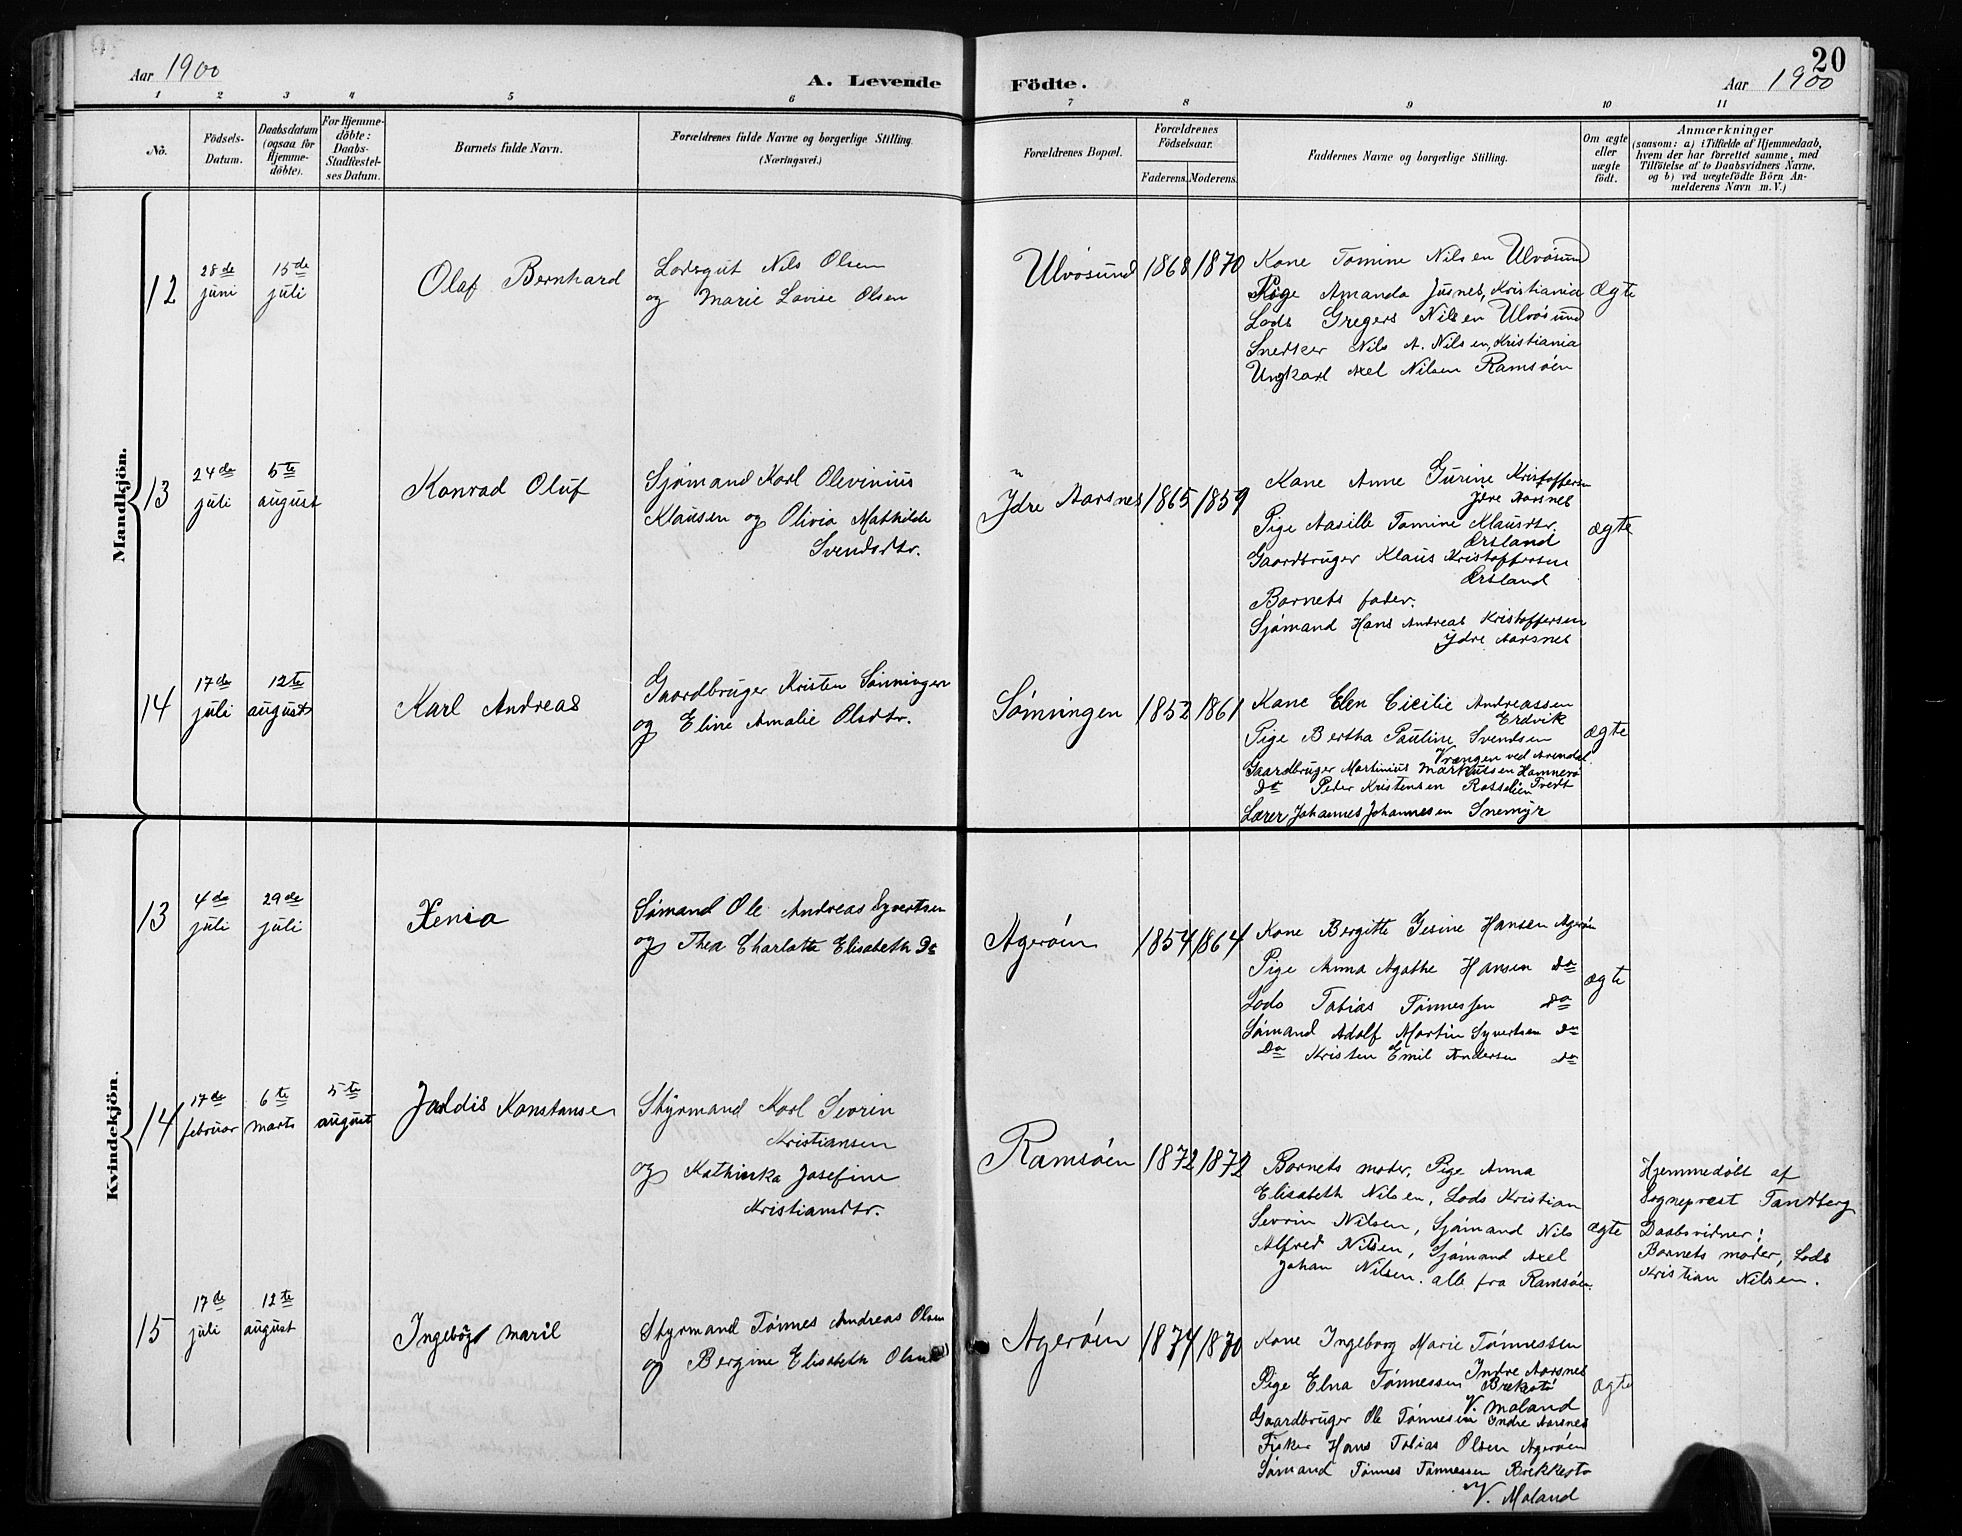 20
Aar 1900
A. Levende
Födte.
Aar 1900
1 2 3 4 5 6 7 8 9 10 11
No.
Födsels-
Datum.
Daabsdatum
(ogsaa for
Hjemme-
döbte).
For Hjemme-
döbte:
Daabs-
Stadfæstel-
ses Datum.
Barnets fulde Navn.
Forældrenes fulde Navne og borgerlige Stilling.
(Næringsvei.)
Forældrenes Bopæl.
Forældrenes
Födselsaar.
Faderens. Moderens.
Faddernes Navne og borgerlige Stilling.
Om ægte
eller
uægte
födt.
Anmærkninger
(saasom: a) i Tilfælde af Hjemmedaab,
hvem der har forrettet samme, med
Tilföielse af to Daabsvidners Navne,
og b) ved uægtefödte Börn An-
melderens Navn m. V.)
Mandkjön.
12
28de
juni
15de
juli
Olaf Bernhard
Lodsgut Nils Olsen
og Marie Lovise Olsen
Ulvøsund
1868
1870
Kone Tomine Nilsen Ulvøsund
Pige Amanda Jusnes, Kristiania
Lods Gregers Nilsen Ulvøsund
Snedker Nils A. Nilsen, Kristiania
Ungkarl Axel Nilsen Ramsøen
Ægte
13
24de
juli
5te
august
Konrad Oluf
Sjømand Karl Olevinius
Klausen og Olivia Mathilde
Svendsdtr.
Ydre Aarsnes
1865
1859
Kone Anne Gurine Kristoffersen
Ydre Aarsnes
Pige Aasille Tomine Klausdtr.
Ærsland
Gaardbruger Klaus Kristoffersen
Ærsland
Barnets fader.
Sjømand Hans Andreas Kristoffersen
Ydre Aarsnes
ægte
14
17de
juli
12te
august
Karl Andreas
Gaardbruger Kristen Sønningen
og Eline Amalie Olsdtr.
Sømningen
1852
1861
Kone Elen Cicilie Andreassen
Erdvik
Pige Bertha Pauline Svendsen
Vrængen ved Arendal
Gaardbruger Martinius Markussen Hamnerø
do Peter Kristensen Rosselien Tvedt
Lærer Johannes Johannesen Snemyr
ægte
Kvindekjön.
13
4de
juli
29de
juli
Xenia
Sømand Ole Andreas Syvertsen
og Thea Charlotte Elisabeth Do
Agerøen
1854
1864
Kone Bergitte Gesine Hansen Agerøen
Pige Anna Agathe Hansen do
Lods Tobias Tønnessen do
Sømand Adolf Martin Syvertsen do
Do Kristen Emil Andersen do
ægte
14
17de
februar
6te
marts
5te
august
Jordis Konstanse
Styrmand Karl Sevrin
Kristiansen
og Kathinka Josefine
Kristiansdtr.
Ramsøen
1872
1872
Barnets moder, Pige Anna
Elisabeth Nilsen, Lods Kristian
Sevrin Nilsen, Sjømand Nils
Alfred Nilsen, Sjømand Axel
Johan Nilsen. alle fra Ramsøen.
ægte
Hjemmedøbt af
Sogneprest Tandberg
Daabsvidner:
Barnets moder, Lods
Kristian Nilsen.
15
17de
juli
12te
august
Ingebørg Marie
Styrmand Tønnes Andreas Olsen
og Bergine Elisabeth Olsen
Agerøen
1874
1870
Kone Ingeborg Marie Tønnessen
Indre Aarsnes
Pige Elna Tønnessen Brekstø
V. Moland
Gaardbruger Ole Tønnesen Indre Aarsnes
Fisker Hans Tobias Olsen Agerøen
Sømand Tønnes Tønnessen Brekkestø
V. Moland
ægte